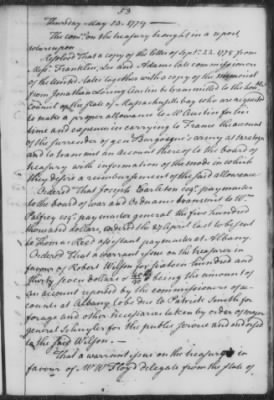 53
Thursday May 13. 1779
The comee. on the treasury brought in a report,
whereupon
Resolved That a copy of the letter of Sept. 22. 1778 from
Messrs. Franklin, Lee and Adams late commissioners
of the United states together with a copy of the memorial
from Jonathan Loring Austin be transmitted to the honble.
Council of the state of Massachusetts bay who are requested
to make a proper allowance to Mr Austin for his
time and expences in carrying to France the account
of the surrender of genl. Burgoyne's army at Saratoga
and to transmit an account thereof to the board of
treasury with information of the mode in which
they desire a reimbursement of the said allowance
Ordered That Joseph Carleton esqr. paymaster
to the board of war and Ordnance transmit to Wm.
Palfrey esqr. paymaster general the five hundred
thousand dollars, ordered the 29 April last to be sent
to Thomas Reed assistant paymaster at Albany.
Ordered That a warrant issue on the treasurer in
favour of Robert Wilson for sixteen hundred and
thirty seven dollars being the amount of
an account reported by the commissioners of ac-
counts at Albany to be due to Patrick Smith for
forage and other necessaries taken by order of major
general Schuyler for the public service and endorsed
to the said Wilson.
That a warrant issue on the treasurer in
favour of Mr W Floyd delegate from the state of